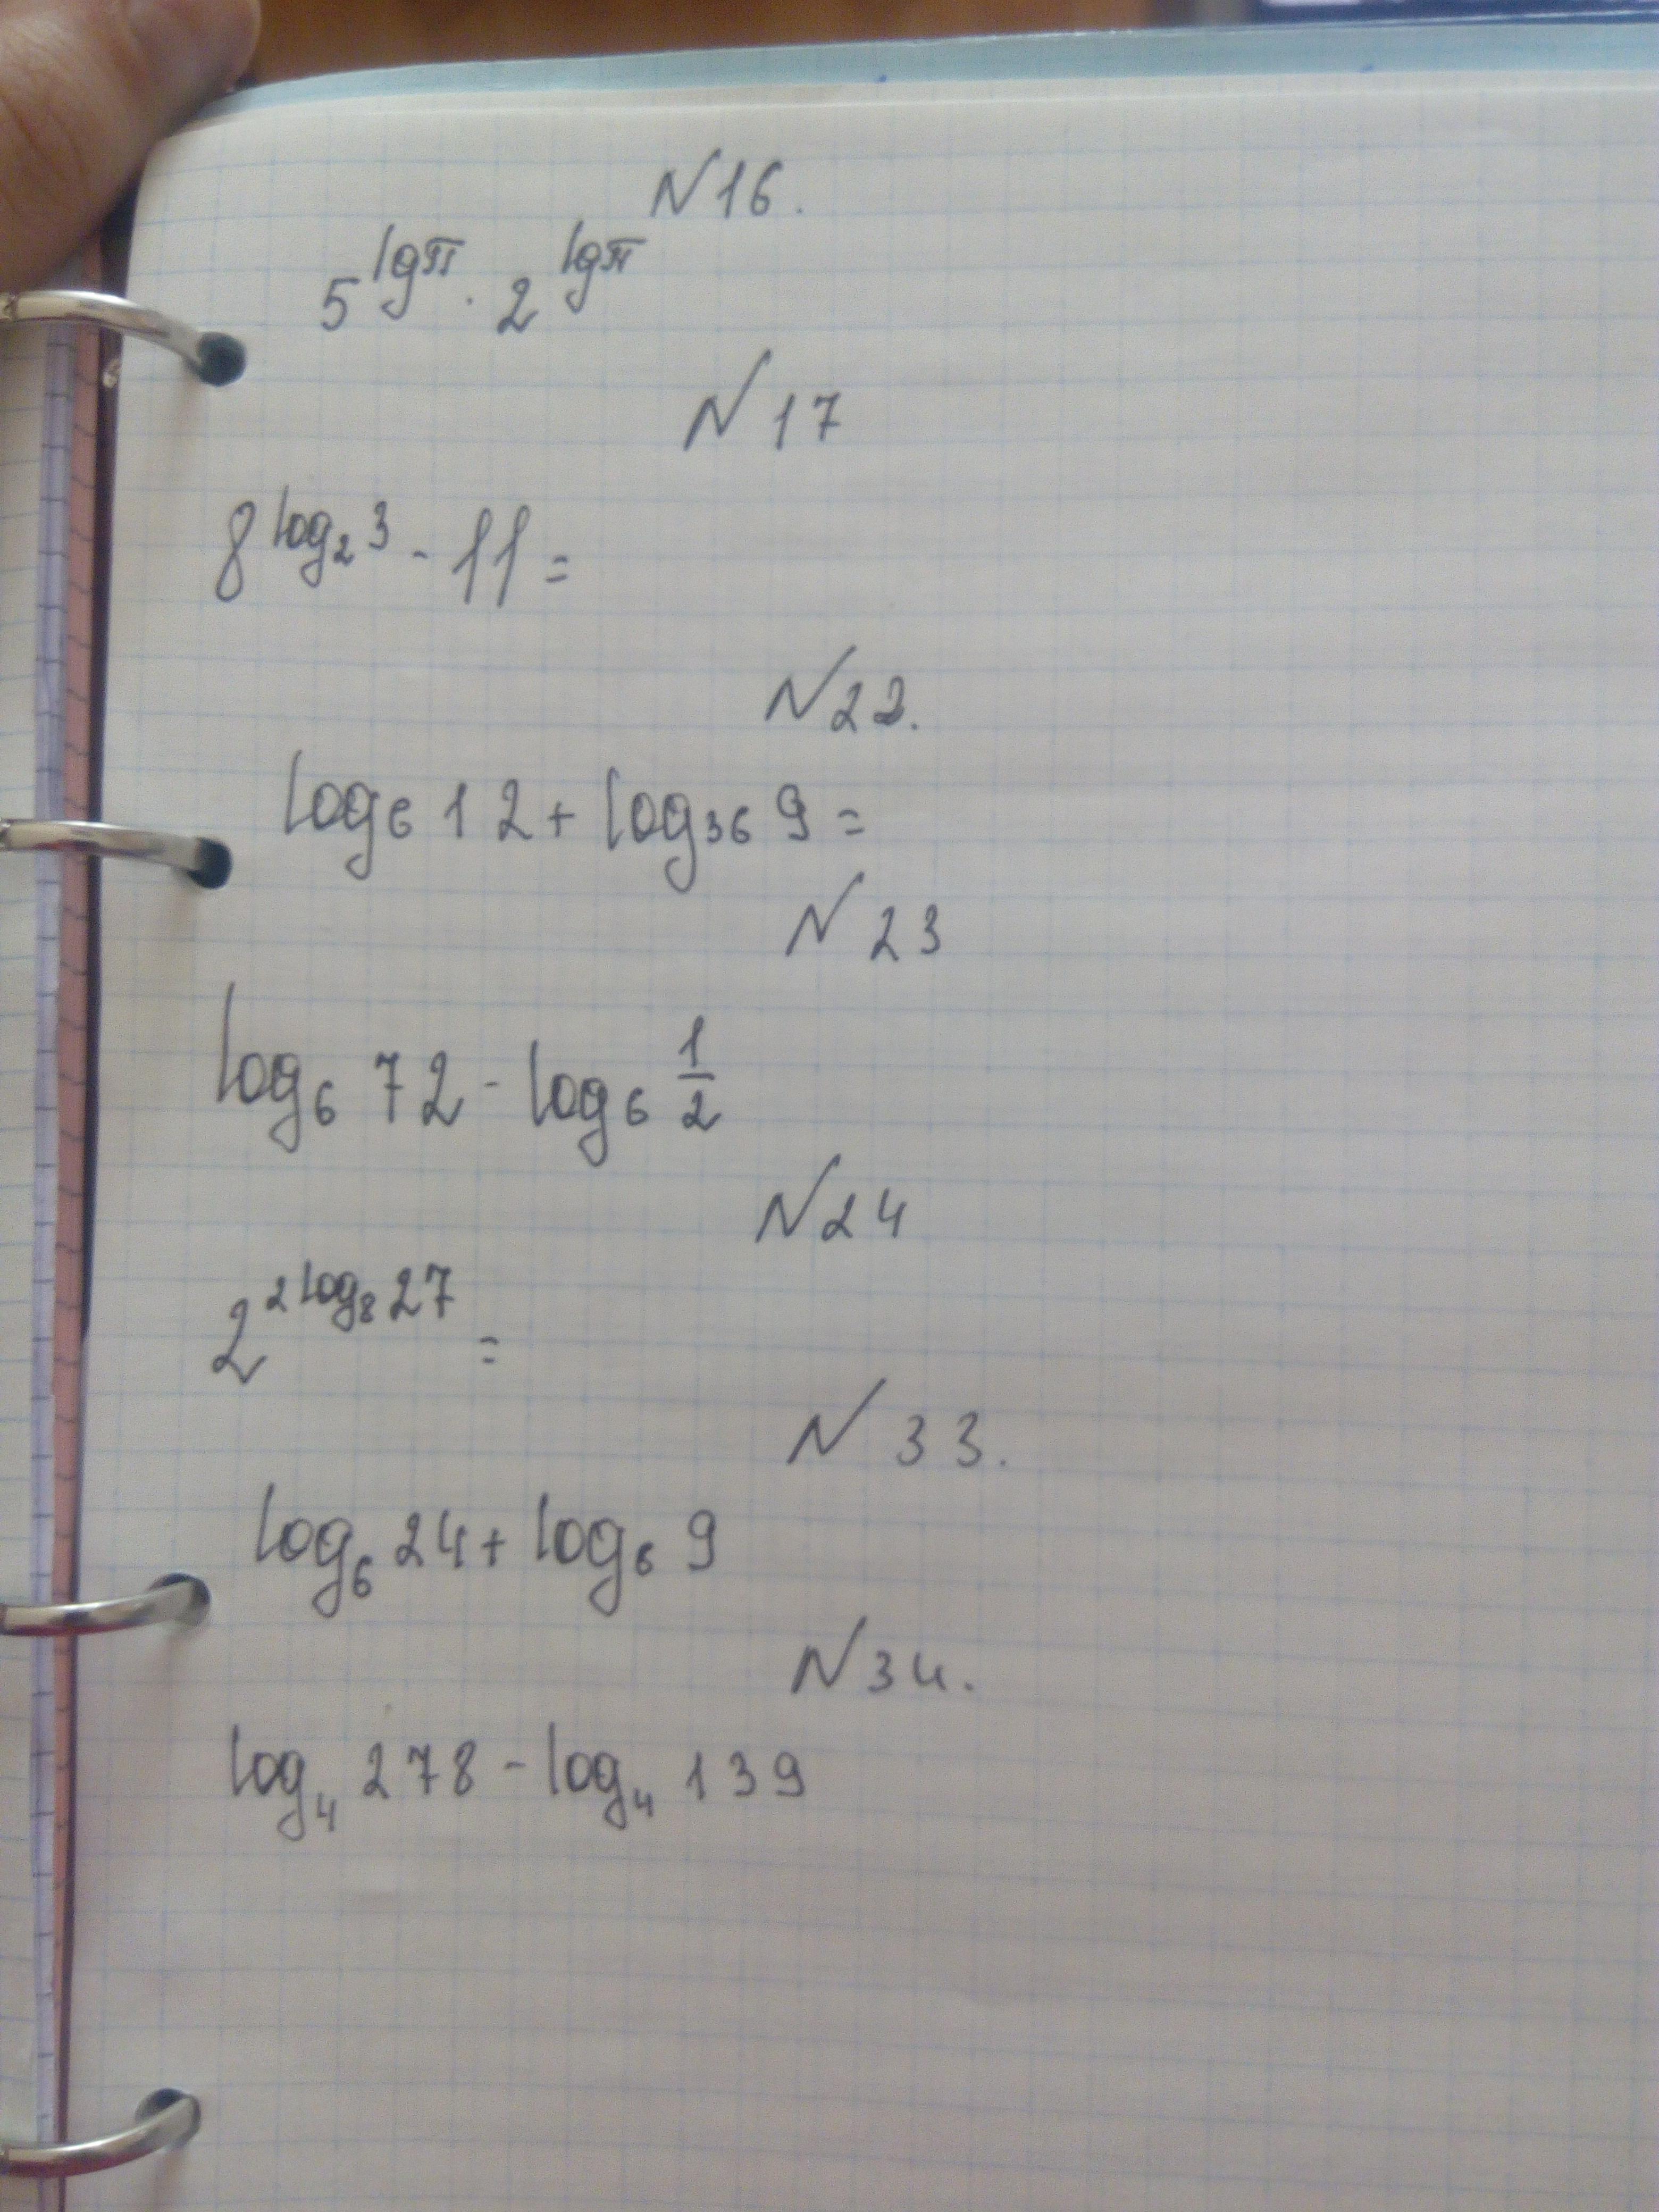 N 16.
5^{lg π} · 2^{lg π}
N 17
8^{log₂ 3} - 11 =
N 22.
log₆ 12 + log₃₆ 9 =
N 23
log₆ 72 - log₆ 1/2
N 24
2^{2 log₈ 27} =
N 33.
log₆ 24 + log₆ 9
N 34.
log₄ 278 - log₄ 139